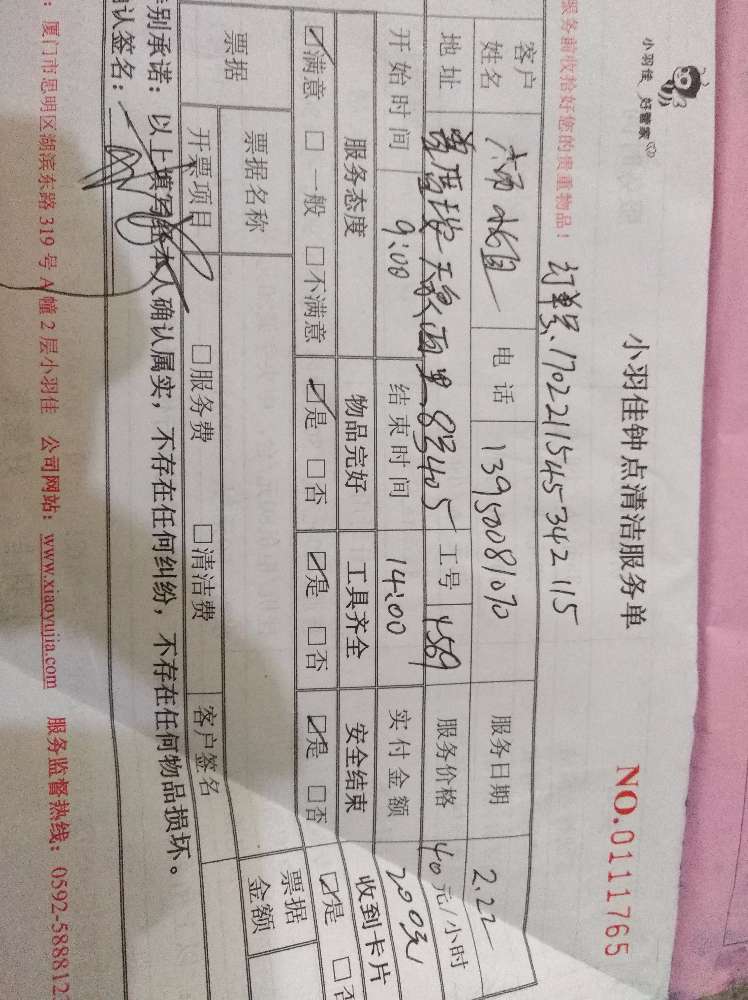 小羽佳 好管家
小羽佳钟点清洁服务单
NO.0111765
服务前收拾好您的贵重物品!
订单号:1702211545342115
客户姓名 电话 13950081070 服务日期 2.22
地址 天象西里 83405 工号 4569 服务价格 40元/小时
开始时间 9:00 结束时间 14:00 实付金额 200元
服务态度 物品完好 工具齐全 安全结束 收到卡片
☑满意 □一般 □不满意 ☑是 □否 ☑是 □否 ☑是 □否 ☑是 □否
票据 票据名称 票据金额
开票项目 □服务费 □清洁费 客户签名
别承诺:以上填写经本人确认属实,不存在任何纠纷,不存在任何物品损坏。
认签名:
:厦门市思明区湖滨东路 319 号 A 幢 2 层小羽佳 公司网站:www.xiaoyujia.com 服务监督热线:0592-588812